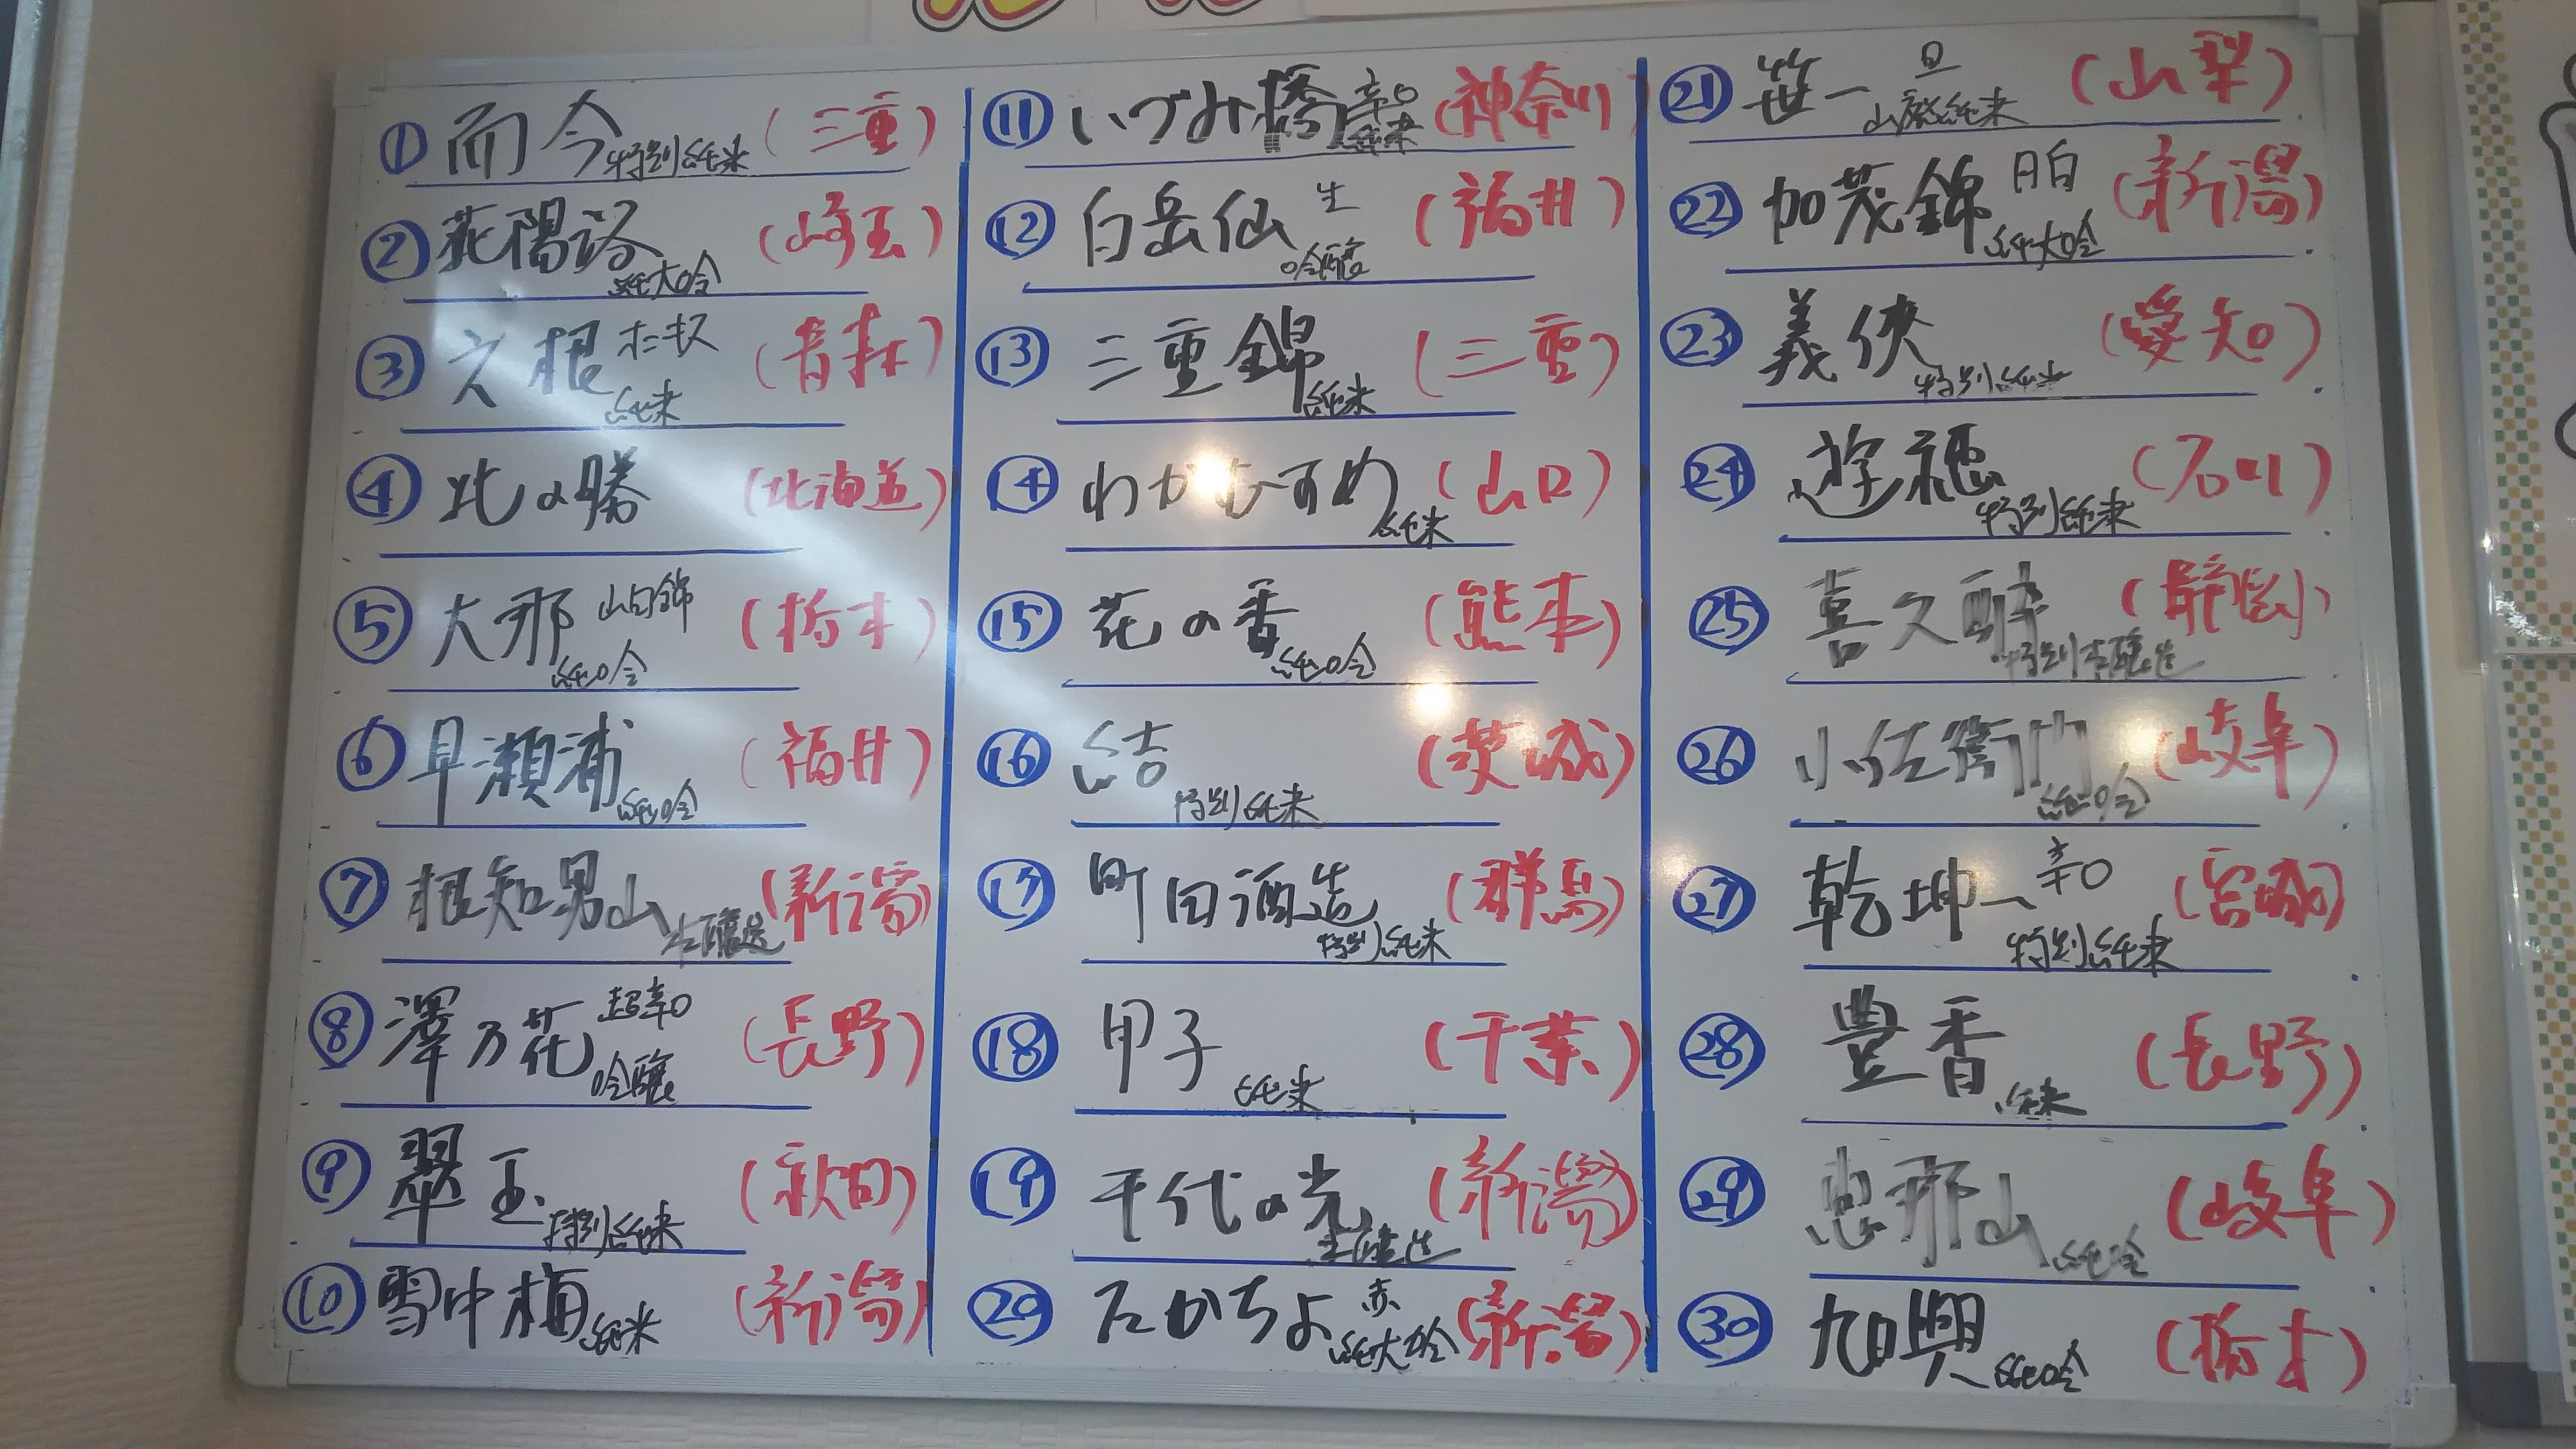 ① 而今 特別純米 (三重)
② 花陽浴 純大吟 (埼玉)
③ 六根 純米 (青森)
④ 北の勝 (北海道)
⑤ 大那 山田錦 純吟 (栃木)
⑥ 早瀬浦 純吟 (福井)
⑦ 根知男山 本醸造 (新潟)
⑧ 澤乃花 超辛口 吟醸 (長野)
⑨ 翠玉 特別純米 (秋田)
⑩ 雪中梅 純米 (新潟)
⑪ いづみ橋 辛口 純米 (神奈川)
⑫ 白岳仙 生 吟醸 (福井)
⑬ 三重錦 純米 (三重)
⑭ わかむすめ 純米 (山口)
⑮ 花の香 純吟 (熊本)
⑯ 結 特別純米 (茨城)
⑰ 町田酒造 特別純米 (群馬)
⑱ 甲子 純米 (千葉)
⑲ 千代の光 本醸造 (新潟)
⑳ たかちよ 赤 純大吟 (新潟)
㉑ 笹一 旦 山廃純米 (山梨)
㉒ 加茂錦 月白 純大吟 (新潟)
㉓ 義侠 特別純米 (愛知)
㉔ 遊穂 特別純米 (石川)
㉕ 喜久酔 特別本醸造 (静岡)
㉖ 小左衛門 純吟 (岐阜)
㉗ 乾坤一 辛口 特別純米 (宮城)
㉘ 豊香 純米 (長野)
㉙ 恵那山 純吟 (岐阜)
㉚ 旭興 純吟 (栃木)